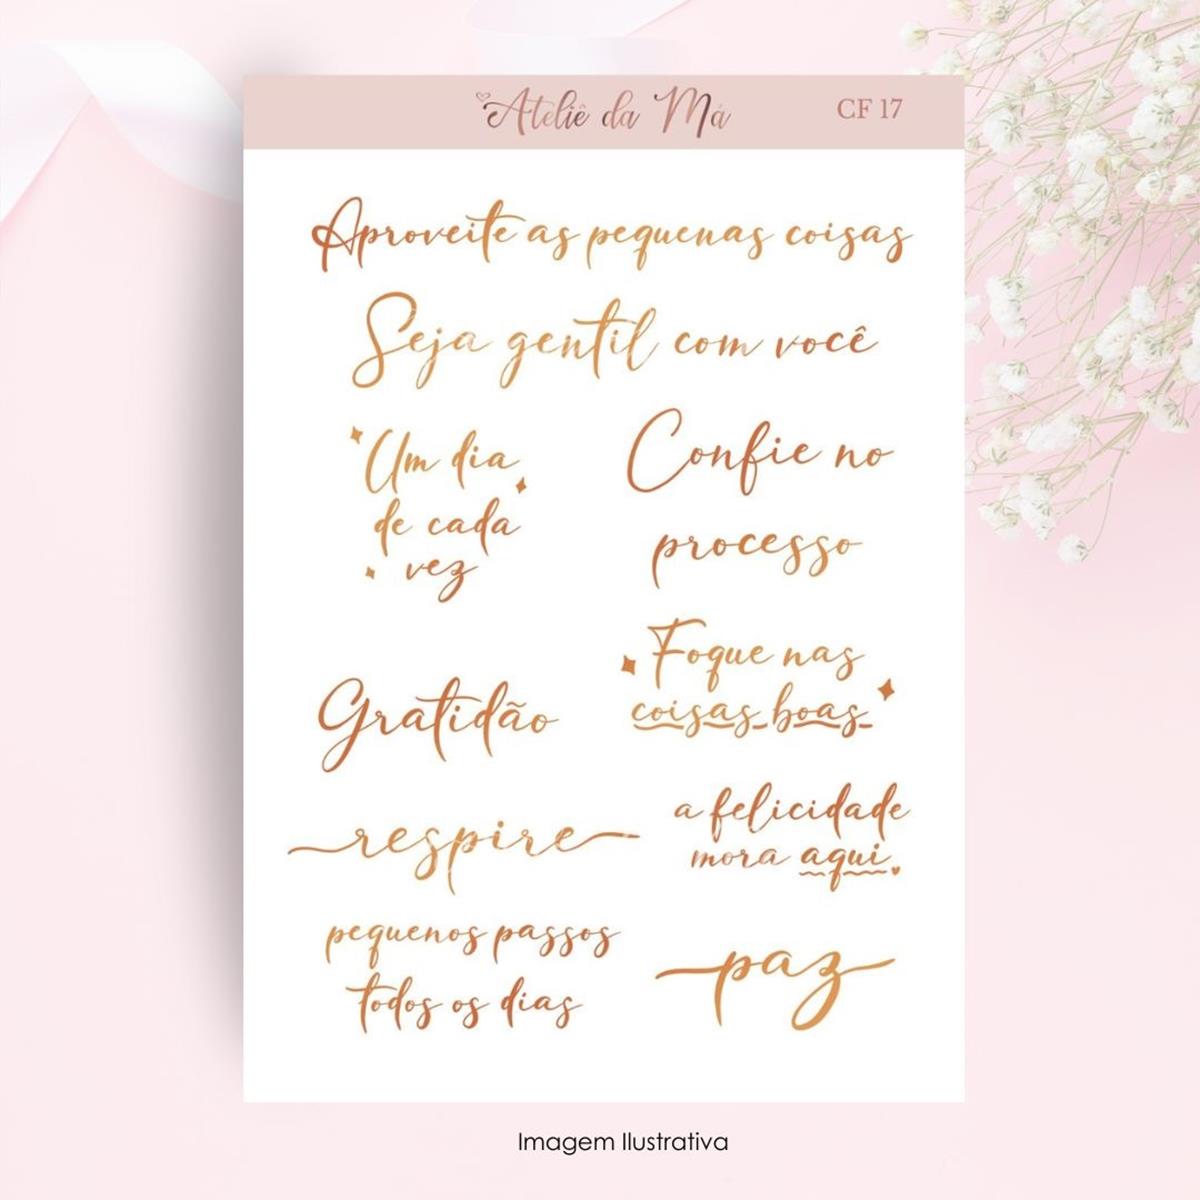 Ateliê da Má
CF 17
Aproveite as pequenas coisas
Seja gentil com você
Um dia
de cada
vez
Confie no
processo
Foque nas
coisas boas
Gratidão
a felicidade
mora aqui
respire
pequenos passos
todos os dias
paz
Imagem Ilustrativa